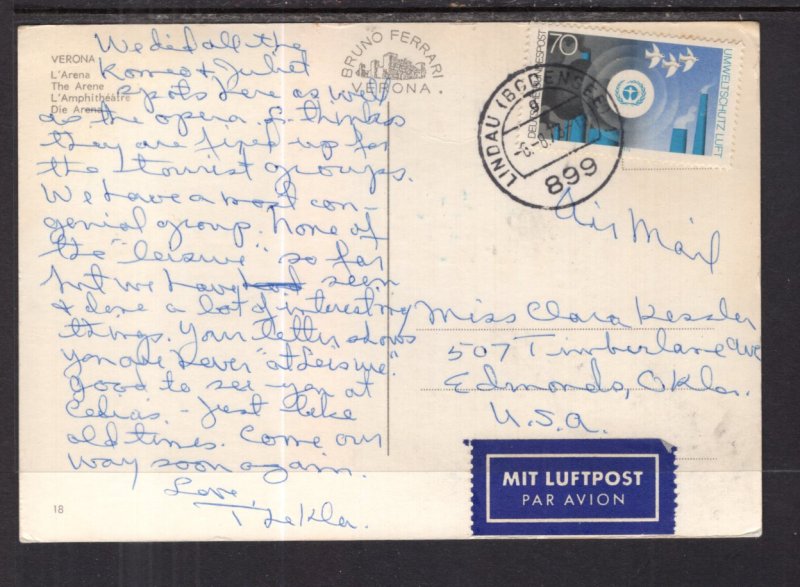 VERONA
L'Arena
The Arene
L'Amphithéâtre
Die Arena
BRUNO FERRARI
VERONA.
We did all the
Romeo & Juliet
spots here as well
as the opera & things
they are fixed up for
the tourist groups.
We have a most con-
genial group. None of
the "leisure" so far
but we have had seen
& done a lot of interesting
things. Your letter shows
you are never "at leisure."
Good to see you at
Celia's. - Just like
old times. Come our
way soon again.
Love,
Thekla.
18
70
DEUTSCHE BUNDESPOST
UMWELTSCHUTZ: LUFT
LINDAU (BODENSEE)
899
Air Mail
Miss Clara Kessler
507 Timberlane Ave
Edmonds, Okla.
U.S.A.
MIT LUFTPOST
PAR AVION